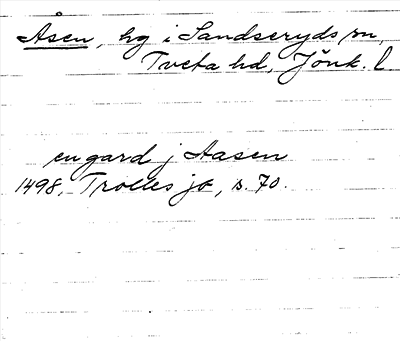 Åsen, hg i Sandseryds sn,
Tveta hd, Jönk. l.
en gard j Aasen
1498, Trolles jb, s. 70.